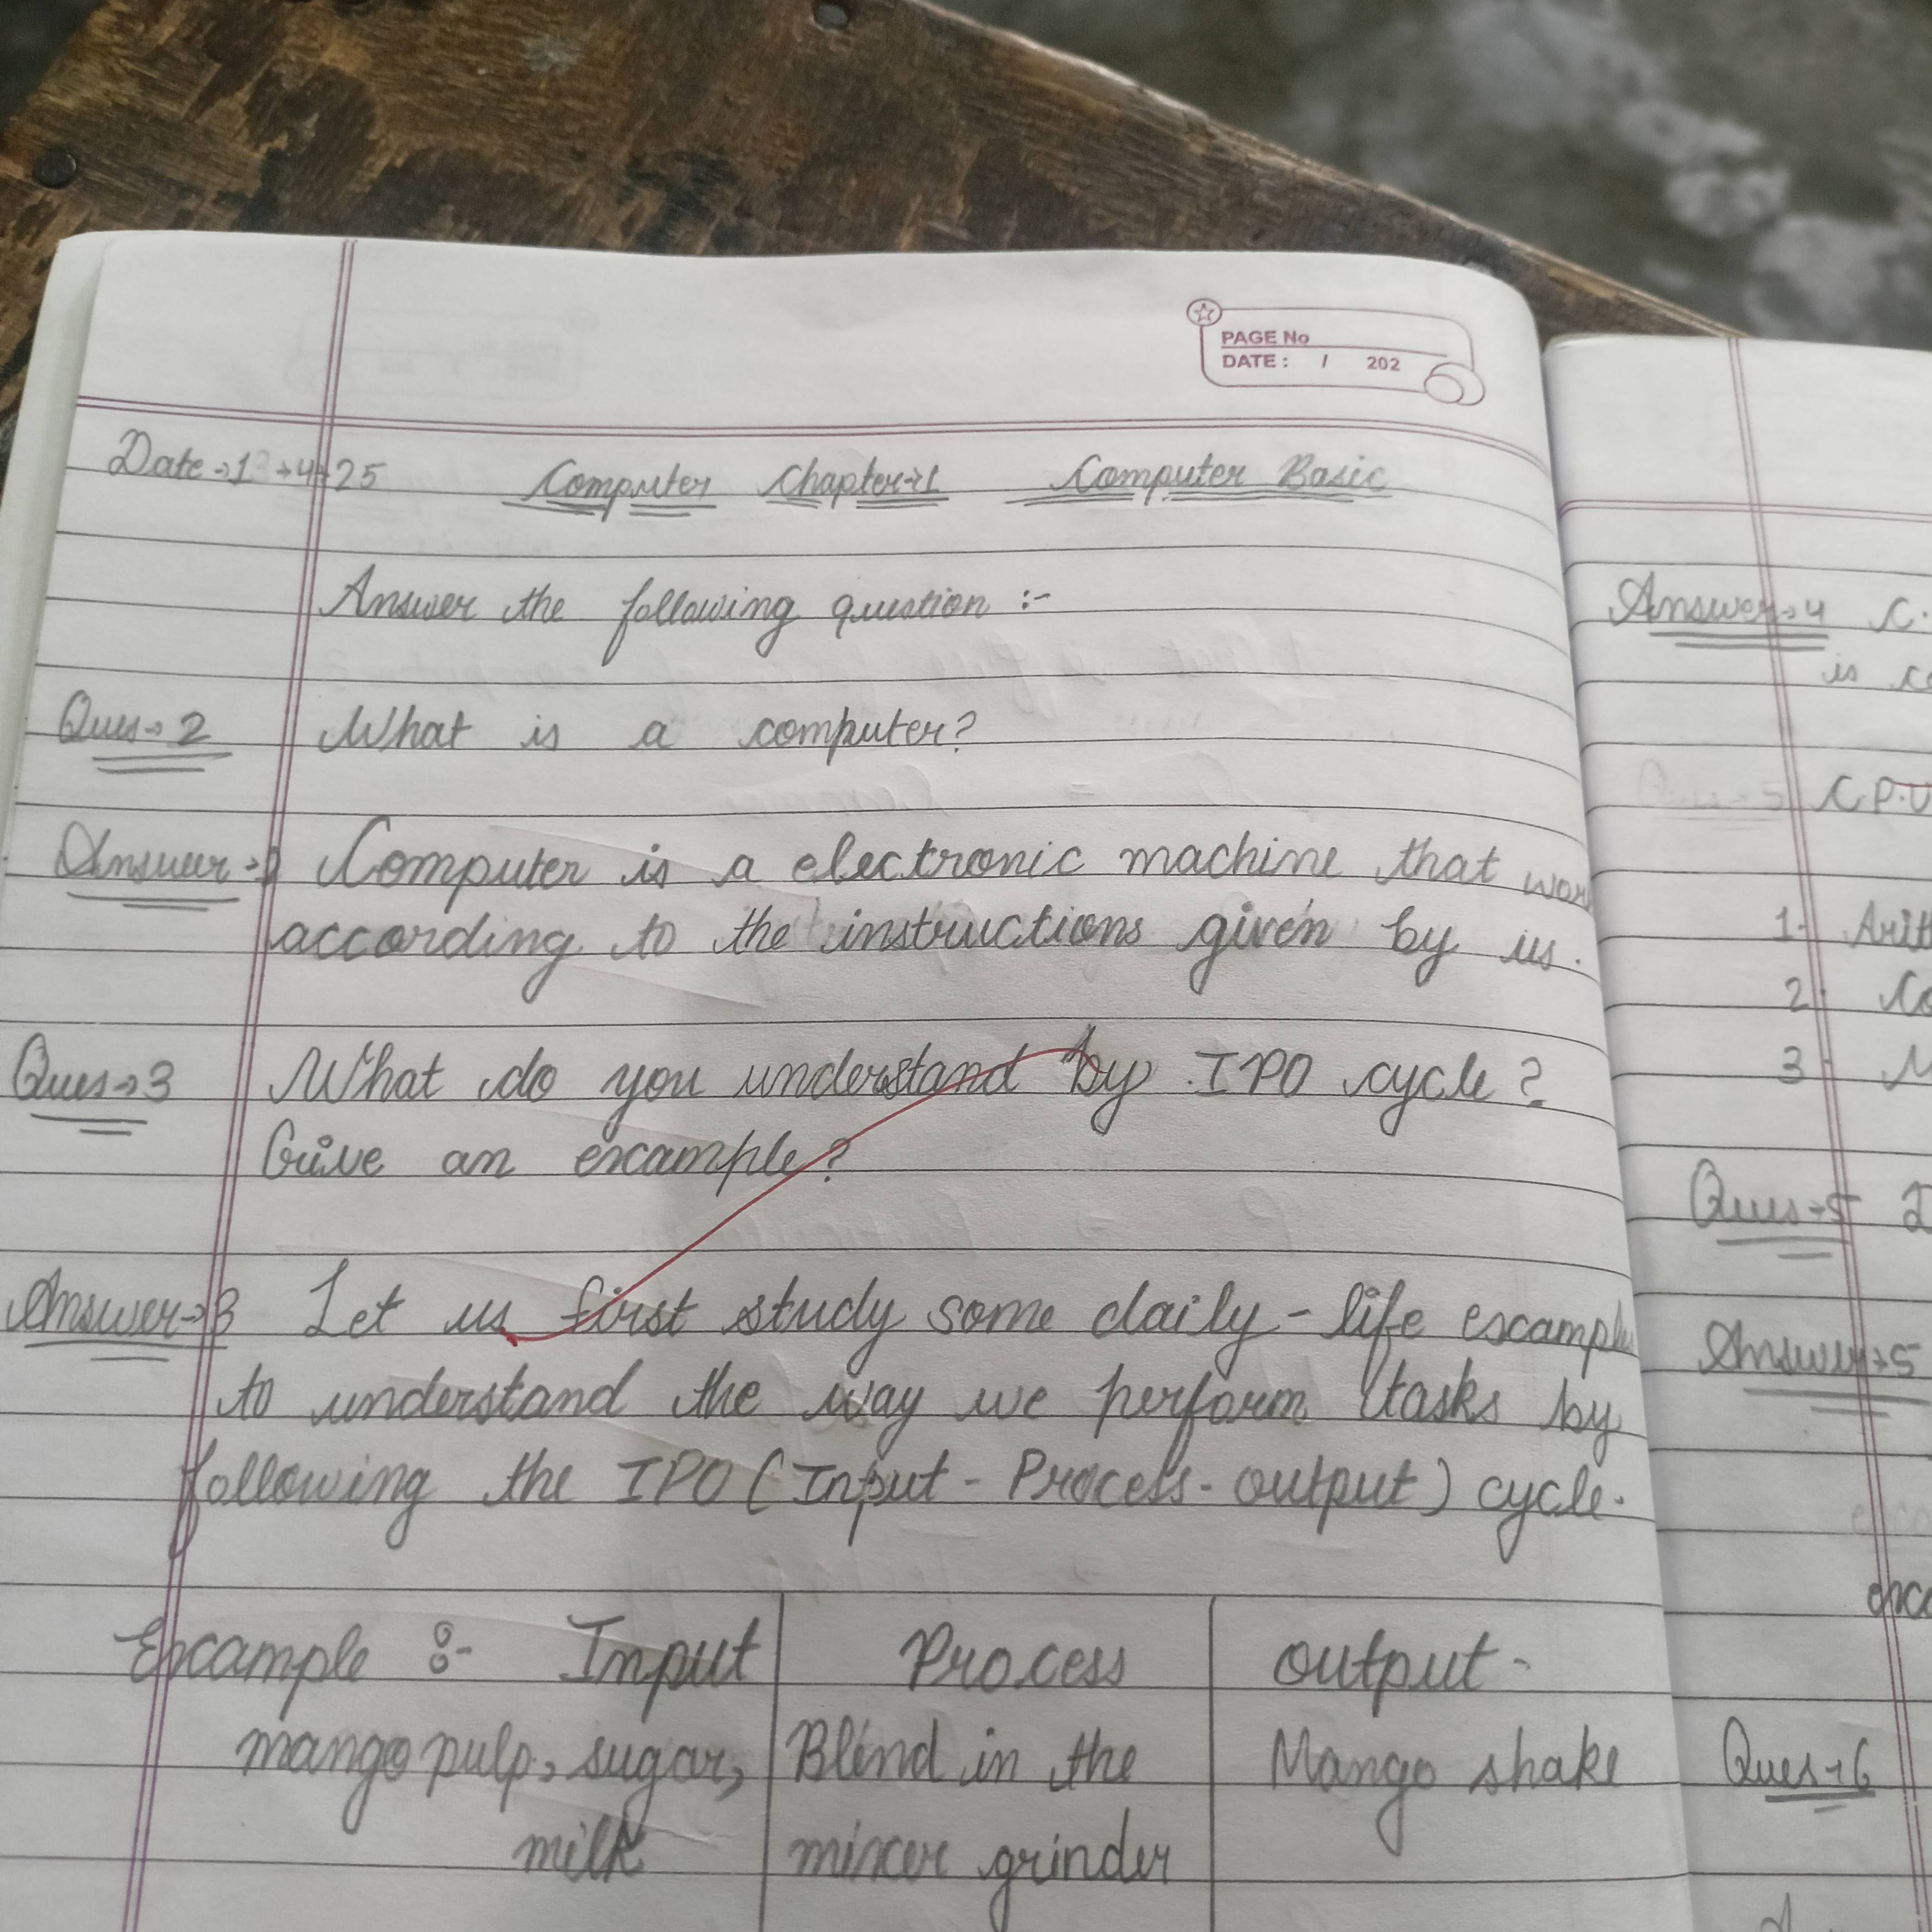 PAGE No
DATE: / 202
Date→13→4→25 Computer Chapter→1 Computer Basic
Answer the following question :-
Ques→2 What is a computer?
Answer→2 Computer is a electronic machine that wor
according to the instructions given by us.
Ques→3 What do you understand by IPO cycle?
Give an example?
Answer→3 Let us first study some daily-life exampl
to understand the way we perform tasks by
following the IPO (Input - Process - output) cycle.
Example :- Input Process output-
mango pulp, sugar, Blend in the Mango shake
milk mixer grinder
Answer→4 C.
is co
Ques→5 C.P.U
1. Arit
2. Co
3. M
Ques→5
Answer→5
exa
Ques→6